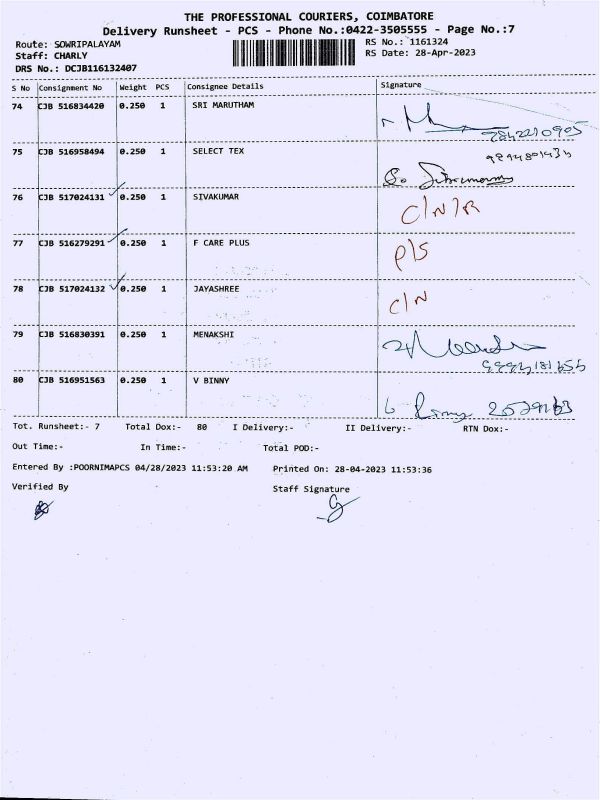 THE PROFESSIONAL COURIERS, COIMBATORE
Delivery Runsheet - PCS - Phone No.:0422-3505555 - Page No.:7
Route: SOWRIPALAYAM RS No.: 1161324
Staff: CHARLY RS Date: 28-Apr-2023
DRS No.: DCJB116132407
S No Consignment No Weight PCS Consignee Details Signature
74 CJB 516834420 0.250 1 SRI MARUTHAM
75 CJB 516958494 0.250 1 SELECT TEX
76 CJB 517024131 0.250 1 SIVAKUMAR
C/N/R
77 CJB 516279291 0.250 1 F CARE PLUS
P/S
78 CJB 517024132 0.250 1 JAYASHREE
C/N
79 CJB 516830391 0.250 1 MENAKSHI
80 CJB 516951563 0.250 1 V BINNY
Tot. Runsheet:- 7 Total Dox:- 80 I Delivery:- II Delivery:- RTN Dox:-
Out Time:- In Time:- Total POD:-
Entered By :POORNIMAPCS 04/28/2023 11:53:20 AM Printed On: 28-04-2023 11:53:36
Verified By Staff Signature